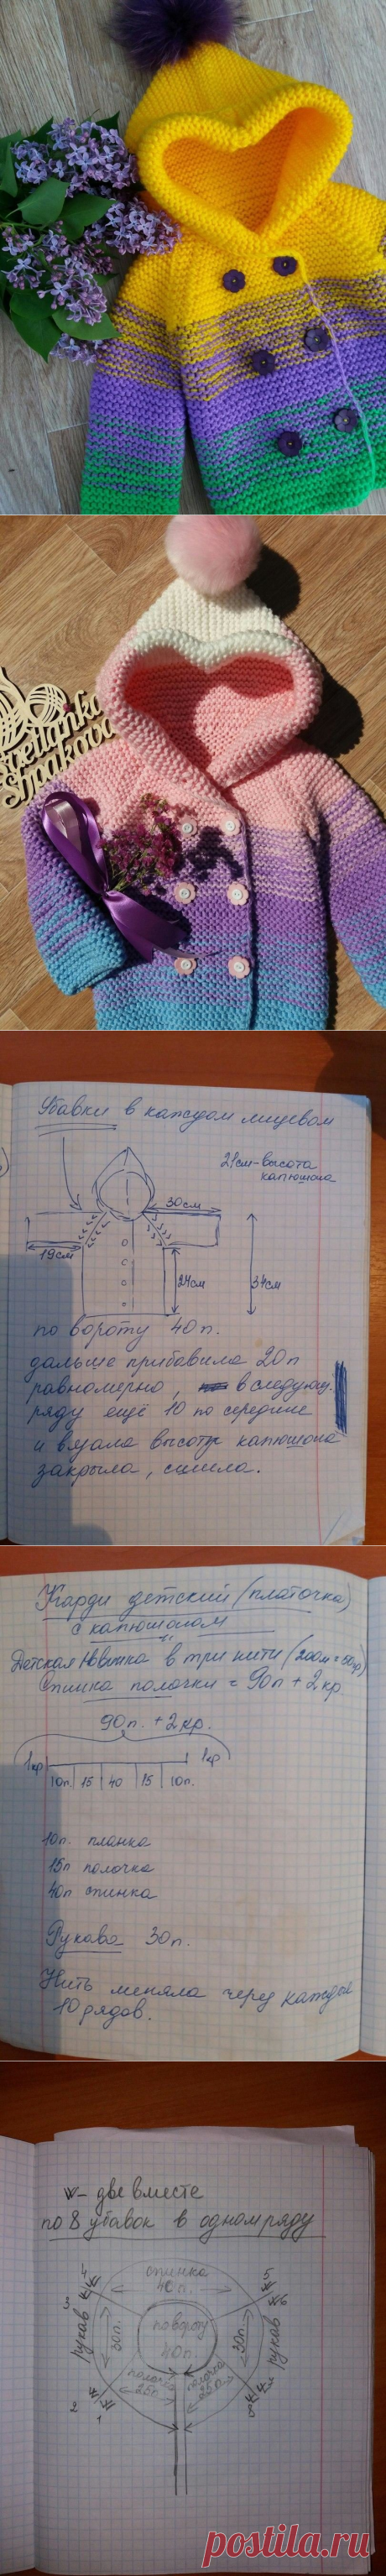 Svetlanka
Shpakova
Убавки в каждом лицевом
21см-высота
капюшона
30см
19см
24см
34см
по вороту 40п.
дальше прибавила 20п
равномерно, в следующ.
ряду ещё 10 по середине
и вязала высоту капюшона
закрыла, сшила.
Карди детский (платочка)
с капюшоном
Детская Новинка в три нити (200м=50гр)
Спинка полочки = 90п + 2кр.
90п. + 2кр.
1кр 1кр
10п. 15 40 15 10п.
10п. планка
15п полочка
40п спинка
Рукава 30п.
Нить меняла через каждые
10 рядов.
две вместе
по 8 убавок в одном ряду
спинка
40п.
4 5
3 6
рукав 30п. по вороту 30п. рукав
40п.
полочка 25п. полочка 25п.
2 1 8 7
postila.ru